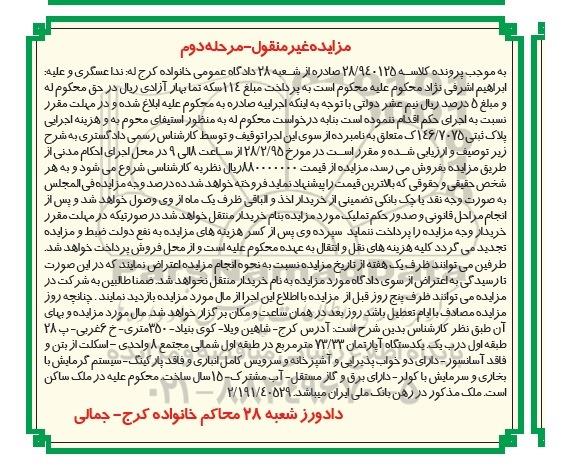 مزایده غیر منقول-مرحله دوم
به موجب پرونده کلاسه ۲۸/۹۴۰۱۲۵ صادره از شعبه ۲۸ دادگاه عمومی خانواده کرج له: ندا عسگری و علیه:
ابراهیم اشرفی نژاد محکوم علیه محکوم است به پرداخت مبلغ ۱۱۴ سکه تمام بهار آزادی ریال در حق محکوم له
و مبلغ ۵ درصد ریال نیم عشر دولتی با توجه به اینکه اجراییه صادره به محکوم علیه ابلاغ شده و در مهلت مقرر
نسبت به اجرای حکم اقدام ننموده است بنابه درخواست محکوم له به منظور استیفای محوم به و هزینه اجرایی
پلاک ثبتی ۱۴۶/۷۰۷۵ ک متعلق به نامبرده از سوی این اجرا توقیف و توسط کارشناس رسمی دادگستری به شرح
زیر توصیف و ارزیابی شده و مقرر است در مورخ ۲۸/۲/۹۵ از ساعت ۸ الی ۹ در محل اجرای احکام مدنی از
طریق مزایده بفروش می رسد، مزایده از قیمت ۸۸۰۰۰۰۰۰۰ ریال نظریه کارشناسی شروع می شود و به هر
شخص حقیقی و حقوقی که بالاترین قیمت را پیشنهاد نماید فروخته خواهد شد ده درصد وجه مزایده فی المجلس
به صورت وجه نقد یا چک بانکی تضمینی از خریدار اخذ و الباقی ظرف یک ماه از وی وصول خواهد شد و پس از
انجام مراحل قانونی و صدور حکم تملیک مورد مزایده بنام خریدار منتقل خواهد شد در صورتیکه در مهلت مقرر
خریدار وجه مزایده را پرداخت ننماید سپرده وی پس از کسر هزینه های مزایده به نفع دولت ضبط و مزایده
تجدید می گردد کلیه هزینه های نقل و انتقال به عهده محکوم علیه است و از محل فروش پرداخت خواهد شد.
طرفین می توانند ظرف یک هفته از تاریخ مزایده نسبت به نحوه انجام مزایده اعتراض نمایند که در این صورت
تا رسیدگی به اعتراض از سوی دادگاه مورد مزایده به نام خریدار منتقل نخواهد شد. ضمنا طالبین به شرکت در
مزایده می توانند ظرف پنج روز قبل از مزایده با اطلاع این اجرا از مال مورد مزایده بازدید نمایند. چنانچه روز
مزایده مصادف با ایام تعطیل باشد روز بعد در همان ساعت و مکان برگزار خواهد شد. مال مورد مزایده و بهای
آن طبق نظر کارشناس بدین شرح است: آدرس کرج- شاهین ویلا- کوی بنیاد- ۳۵۰متری- خ ۶غربی- پ ۲۸
طبقه اول درب یک یکدستگاه آپارتمان ۷۳/۳۳ مترمربع در طبقه اول شمالی مجتمع ۸ واحدی - اسکلت از بتن و
فاقد آسانسور- دارای دو خواب پذیرایی و آشپزخانه و سرویس کامل انباری و فاقد پارکینگ- سیستم گرمایش با
بخاری و سرمایش با کولر- دارای برق و گاز مستقل- آب مشترک- ۱۵سال ساخت. محکوم علیه در ملک ساکن
است. ملک مذکور در رهن بانک ملی ایران میباشد. ۲/۱۹۱/۴۰۵۲۹
دادورز شعبه ۲۸ محاکم خانواده کرج- جمالی